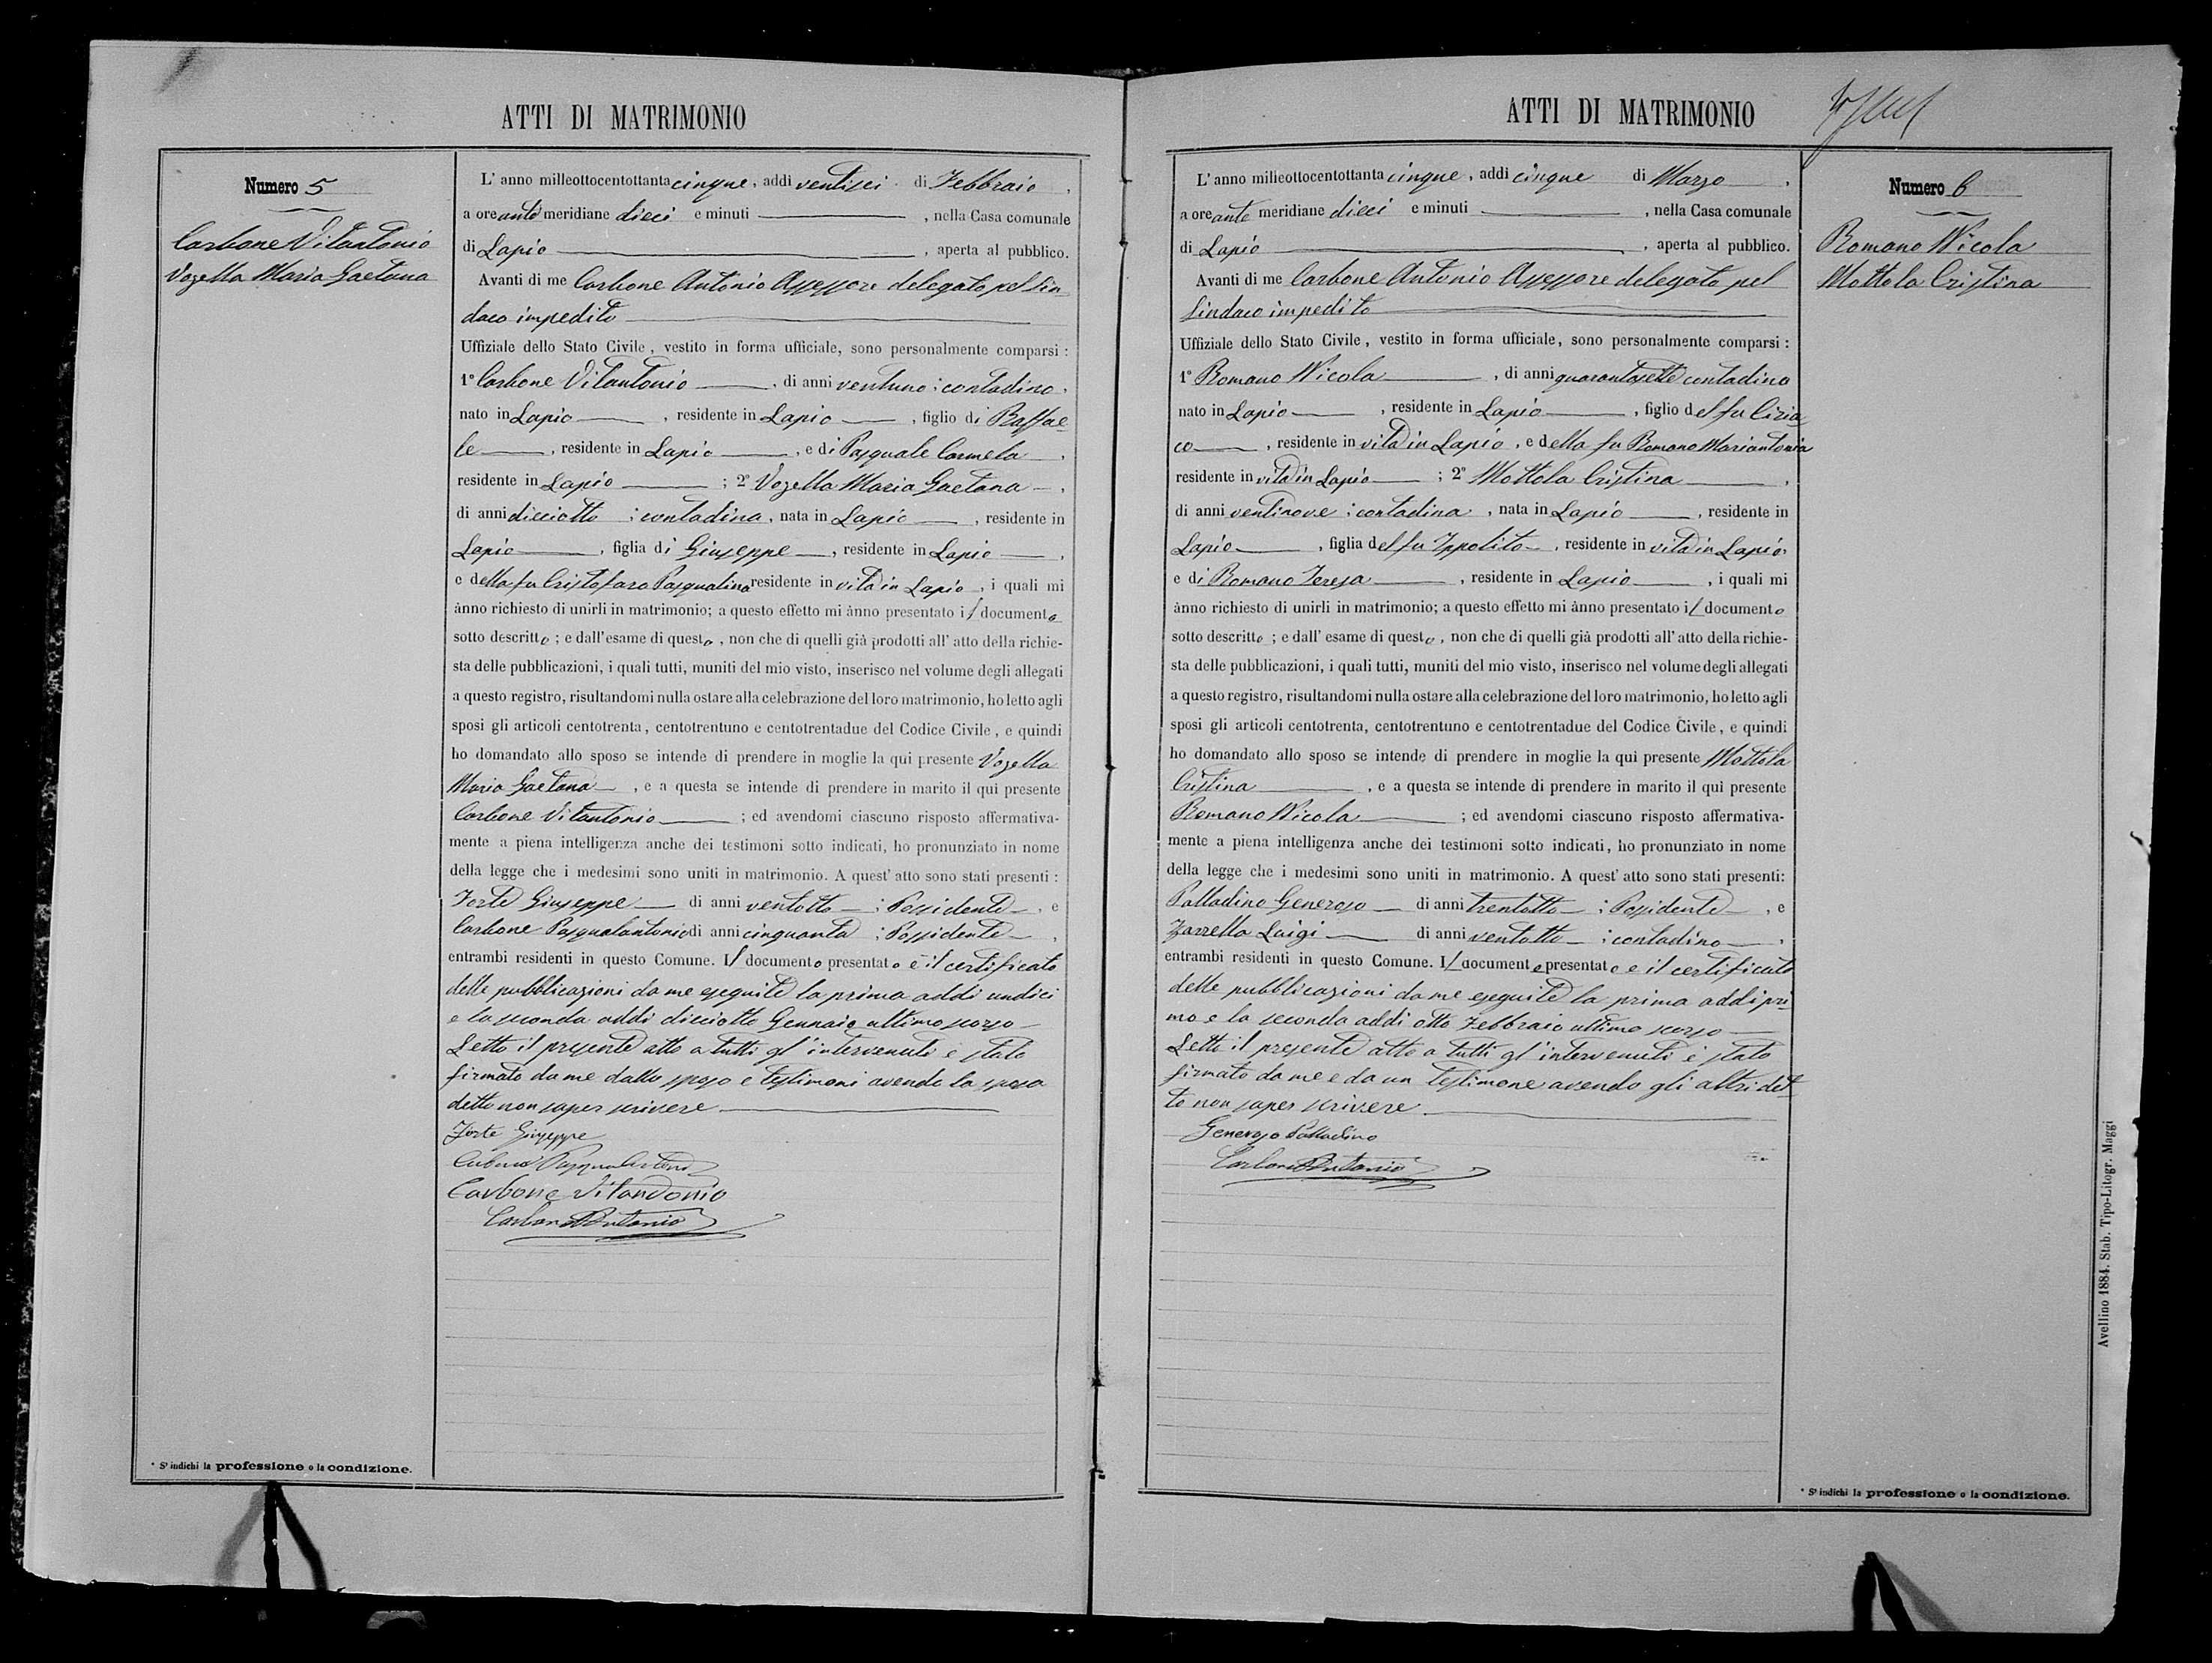 ATTI DI MATRIMONIO
Numero 5
Carbone Vitantonio
Vozella Maria Gaetana
L'anno milleottocentottantacinque, addì ventisei di Febbraio,
a ore ante meridiane dieci e minuti , nella Casa comunale
di Lapio , aperta al pubblico.
Avanti di me Carbone Antonio Assessore delegato pel Sin-
daco impedito
Uffiziale dello Stato Civile, vestito in forma ufficiale, sono personalmente comparsi:
1° Carbone Vitantonio , di anni ventuno; contadino,
nato in Lapio , residente in Lapio , figlio di Raffae-
le , residente in Lapio , e di Pasquale Carmela ,
residente in Lapio ; 2° Vozella Maria Gaetana ,
di anni dicciotto ; contadina, nata in Lapio , residente in
Lapio , figlia di Giuseppe , residente in Lapio ,
e della fu Cristofaro Pasqualina residente in vita in Lapio , i quali mi
ànno richiesto di unirli in matrimonio; a questo effetto mi ànno presentato il documento
sotto descritto; e dall'esame di questo, non che di quelli già prodotti all'atto della richie-
sta delle pubblicazioni, i quali tutti, muniti del mio visto, inserisco nel volume degli allegati
a questo registro, risultandomi nulla ostare alla celebrazione del loro matrimonio, ho letto agli
sposi gli articoli centotrenta, centotrentuno e centotrentadue del Codice Civile, e quindi
ho domandato allo sposo se intende di prendere in moglie la qui presente Vozella
Maria Gaetana , e a questa se intende di prendere in marito il qui presente
Carbone Vitantonio ; ed avendomi ciascuno risposto affermativa-
mente a piena intelligenza anche dei testimoni sotto indicati, ho pronunziato in nome
della legge che i medesimi sono uniti in matrimonio. A quest'atto sono stati presenti:
Forte Giuseppe di anni ventotto ; Possidente , e
Carbone Pasqualantonio di anni cinquanta ; Possidente ,
entrambi residenti in questo Comune. Il documento presentato è il certificato
delle pubblicazioni da me eseguite la prima addì undici
e la seconda addì dicciotto Gennaio ultimo scorso
Letto il presente atto a tutti gl'intervenuti è stato
firmato da me dallo sposo e testimoni avendo la sposa
detto non saper scrivere
Forte Giuseppe
Carbone Pasqualantonio
Carbone Vitandonio
Carbone Antonio
* Si indichi la professione o la condizione.
ATTI DI MATRIMONIO
Numero 6
Romano Nicola
Mottola Cristina
L'anno milleottocentottantacinque, addì cinque di Marzo ,
a ore ante meridiane dieci e minuti , nella Casa comunale
di Lapio , aperta al pubblico.
Avanti di me Carbone Antonio Assessore delegato pel
Sindaco impedito
Uffiziale dello Stato Civile, vestito in forma ufficiale, sono personalmente comparsi:
1° Romano Nicola , di anni quarantasette contadino
nato in Lapio , residente in Lapio , figlio del fu Ciria-
co , residente in vita in Lapio , e della fu Romano Mariantonia
residente in vita in Lapio ; 2° Mottola Cristina ,
di anni ventinove ; contadina , nata in Lapio , residente in
Lapio , figlia del fu Ippolito , residente in vita in Lapio
e di Romano Teresa , residente in Lapio , i quali mi
ànno richiesto di unirli in matrimonio; a questo effetto mi ànno presentato il documento
sotto descritto ; e dall'esame di questo, non che di quelli già prodotti all'atto della richie-
sta delle pubblicazioni, i quali tutti, muniti del mio visto, inserisco nel volume degli allegati
a questo registro, risultandomi nulla ostare alla celebrazione del loro matrimonio, ho letto agli
sposi gli articoli centotrenta, centotrentuno e centotrentadue del Codice Civile, e quindi
ho domandato allo sposo se intende di prendere in moglie la qui presente Mottola
Cristina , e a questa se intende di prendere in marito il qui presente
Romano Nicola ; ed avendomi ciascuno risposto affermativa-
mente a piena intelligenza anche dei testimoni sotto indicati, ho pronunziato in nome
della legge che i medesimi sono uniti in matrimonio. A quest'atto sono stati presenti:
Palladino Generoso di anni trentotto ; Possidente , e
Zarrella Luigi di anni ventotto ; contadino ,
entrambi residenti in questo Comune. Il documento presentato è il certificato
delle pubblicazioni da me eseguite la prima addì pri-
mo e la seconda addì otto Febbraio ultimo scorso
Letto il presente atto a tutti gl'intervenuti è stato
firmato da me e da un testimone avendo gli altri det-
to non saper scrivere.
Generoso Palladino
Carbone Antonio
* Si indichi la professione o la condizione.
Avellino 1884. Stab. Tipo-Litogr. Maggi